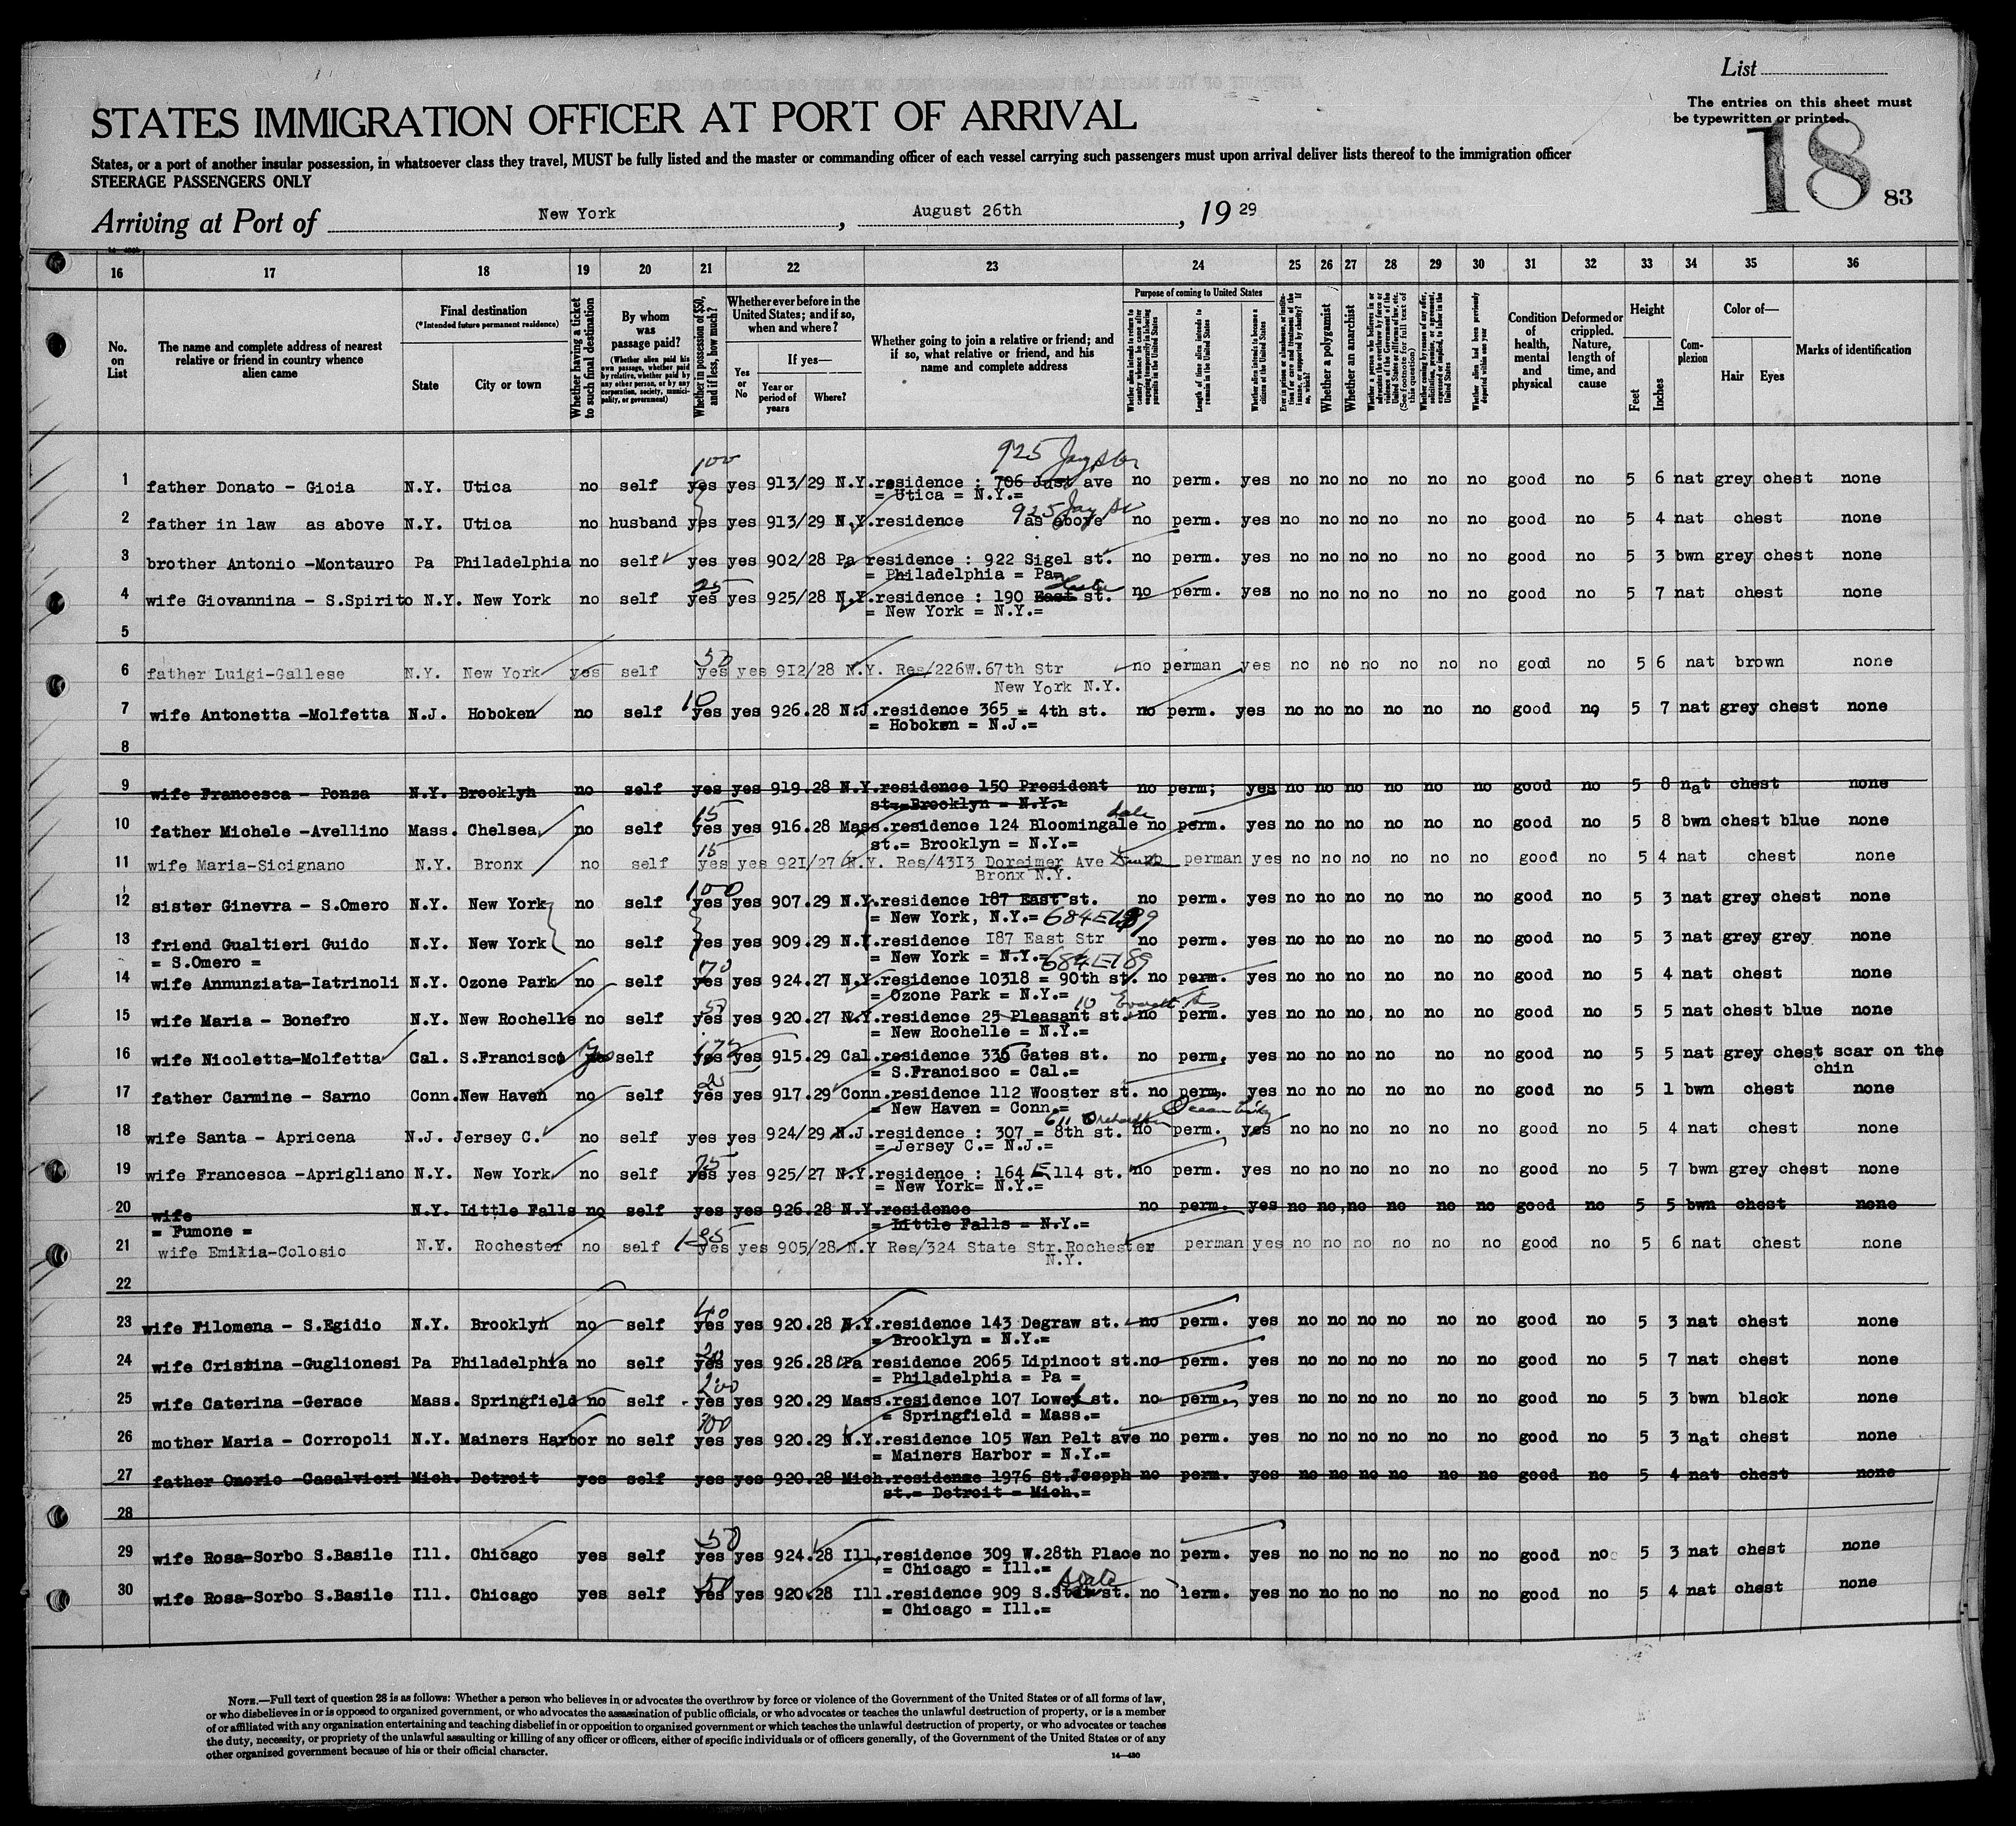 List
The entries on this sheet must
be typewritten or printed.
18 83
STATES IMMIGRATION OFFICER AT PORT OF ARRIVAL
States, or a port of another insular possession, in whatsoever class they travel, MUST be fully listed and the master or commanding officer of each vessel carrying such passengers must upon arrival deliver lists thereof to the immigration officer
STEERAGE PASSENGERS ONLY
Arriving at Port of New York, August 26th, 19 29
16 17 18 19 20 21 22 23 24 25 26 27 28 29 30 31 32 33 34 35 36
No. on List
The name and complete address of nearest relative or friend in country whence alien came
Final destination
(*Intended future permanent residence)
State
City or town
Whether having a ticket to such final destination
By whom was passage paid?
(Whether alien paid his own passage, whether paid by relative, whether paid by any other person, or by any corporation, society, municipality, or government)
Whether in possession of $50, and if less, how much?
Whether ever before in the United States; and if so, when and where?
Yes or No
If yes—
Year or period of years
Where?
Whether going to join a relative or friend; and if so, what relative or friend, and his name and complete address
Purpose of coming to United States
Whether alien intends to return to country whence he came after engaging temporarily in laboring pursuits in the United States
Length of time alien intends to remain in the United States
Whether alien intends to become a citizen of the United States
Whether a polygamist
Whether an anarchist
Whether alien had been previously deported within one year
Condition of health, mental and physical
Deformed or crippled. Nature, length of time, and cause
Height
Feet
Inches
Complexion
Color of—
Hair
Eyes
Marks of identification
100 925 Jay Str
1 father Donato - Gioia N.Y. Utica no self yes yes 913/29 N.Y. residence : 706 Just ave no perm. yes no no no no no no good no 5 6 nat grey chest none
= Utica = N.Y.=
925 Jay St
2 father in law as above N.Y. Utica no husband yes yes 913/29 N.Y. residence as above no perm. yes no no no no no no good no 5 4 nat chest none
3 brother Antonio -Montauro Pa Philadelphia no self yes yes 902/28 Pa residence : 922 Sigel st. no perm. yes no no no no no no good no 5 3 bwn grey chest none
= Philadelphia = Pa=
25
4 wife Giovannina - S.Spirito N.Y. New York no self yes yes 925/28 N.Y. residence : 190 East st. no perm. yes no no no no no no good no 5 7 nat chest none
= New York = N.Y.=
5
50
6 father Luigi-Gallese N.Y. New York yes self yes yes 912/28 N.Y. Res/226W.67th Str no perman yes no no no no no no good no 5 6 nat brown none
New York N.Y.
10
7 wife Antonetta -Molfetta N.J. Hoboken no self yes yes 926.28 N.J. residence 365 = 4th st. no perm. yes no no no no no no good no 5 7 nat grey chest none
= Hoboken = N.J.=
8
9 wife Francesca - Ponza N.Y. Brooklyn no self yes yes 919.28 N.Y. residence 150 President no perm; yes no no no no no no good no 5 8 nat chest none
st.=Brooklyn = N.Y.=
15 dale
10 father Michele -Avellino Mass. Chelsea no self yes yes 916.28 Mass. residence 124 Bloomingale no perm. yes no no no no no no good no 5 8 bwn chest blue none
st.= Brooklyn = N.Y.=
15
11 wife Maria-Sicignano N.Y. Bronx no self yes yes 921/27 N.Y. Res/4313 Doreimer Ave no perman yes no no no no no no good no 5 4 nat chest none
Bronx N.Y.
100
12 sister Ginevra - S.Omero N.Y. New York no self yes yes 907.29 N.Y. residence 187 East st. no perm. yes no no no no no no good no 5 3 nat grey chest none
= New York, N.Y.= 684 E 189
13 friend Gualtieri Guido N.Y. New York no self yes yes 909.29 N.Y. residence 187 East Str no perm. yes no no no no no no good no 5 3 nat grey grey none
= S.Omero = = New York = N.Y.= 684 E 189
70
14 wife Annunziata-Iatrinoli N.Y. Ozone Park no self yes yes 924.27 N.Y. residence 10318 = 90th st. no perm. yes no no no no no no good no 5 4 nat chest none
= Ozone Park = N.Y.=
50 10 Everett
15 wife Maria - Bonefro N.Y. New Rochelle no self yes yes 920.27 N.Y. residence 25 Pleasant st. no perm. yes no no no no no no good no 5 5 nat chest blue none
= New Rochelle = N.Y.=
175
16 wife Nicoletta-Molfetta Cal. S.Francisco yes self yes yes 915.29 Cal. residence 335 Gates st. no perm. yes no no no no no no good no 5 5 nat grey chest scar on the chin
= S.Francisco = Cal.=
17 father Carmine - Sarno Conn. New Haven no self yes yes 917.29 Conn. residence 112 Wooster st. no perm. yes no no no no no no good no 5 1 bwn chest none
= New Haven = Conn.=
611 Ocean City
18 wife Santa - Apricena N.J. Jersey C. no self yes yes 924/29 N.J. residence : 307 = 8th st. no perm. yes no no no no no no good no 5 4 nat chest none
= Jersey C.= N.J.=
75
19 wife Francesca -Aprigliano N.Y. New York no self yes yes 925/27 N.Y. residence : 164 E 114 st. no perm. yes no no no no no no good no 5 7 bwn grey chest none
= New York= N.Y.=
20 wife N.Y. Little Falls no self yes yes 926.28 N.Y. residence no perm. yes no no no no no no good no 5 5 bwn chest none
= Fumone = = Little Falls = N.Y.=
21 wife Emilia-Colosio N.Y. Rochester no self yes yes 905/28 N.Y Res/324 State Str.Rochester perman yes no no no no no no good no 5 6 nat chest none
N.Y.
22
40
23 wife Filomena - S.Egidio N.Y. Brooklyn no self yes yes 920.28 N.Y. residence 143 Degraw st. no perm. yes no no no no no no good no 5 3 nat chest none
= Brooklyn = N.Y.=
20
24 wife Cristina -Guglionesi Pa Philadelphia no self yes yes 926.28 Pa residence 2065 Lipincot st. no perm. yes no no no no no no good no 5 7 nat chest none
= Philadelphia = Pa =
200
25 wife Caterina -Gerace Mass. Springfield no self yes yes 920.29 Mass. residence 107 Lowel st. no perm. yes no no no no no no good no 5 3 bwn black none
= Springfield = Mass.=
300
26 mother Maria - Corropoli N.Y. Mainers Harbor no self yes yes 920.29 N.Y. residence 105 Wan Pelt ave no perm. yes no no no no no no good no 5 3 nat chest none
= Mainers Harbor = N.Y.=
27 father Omerio -Casalvieri Mich. Detroit yes self yes yes 920.28 Mich. residense 1976 St.Joseph no perm. yes no no no no no no good no 5 4 nat chest none
st.= Detroit = Mich.=
28
50
29 wife Rosa-Sorbo S.Basile Ill. Chicago yes self yes yes 924.28 Ill. residence 309 W.28th Place no perm. yes no no no no no no good no 5 3 nat chest none
= Chicago = Ill.=
50 State
30 wife Rosa-Sorbo S.Basile Ill. Chicago yes self yes yes 920.28 Ill. residence 909 S. st. no lerm. yes no no no no no no good no 5 4 nat chest none
= Chicago = Ill.=
NOTE.—Full text of question 28 is as follows: Whether a person who believes in or advocates the overthrow by force or violence of the Government of the United States or of all forms of law,
or who disbelieves in or is opposed to organized government, or who advocates the assassination of public officials, or who advocates or teaches the unlawful destruction of property, or is a member
of or affiliated with any organization entertaining and teaching disbelief in or opposition to organized government or which teaches the unlawful destruction of property, or who advocates or teaches
the duty, necessity, or propriety of the unlawful assaulting or killing of any officer or officers, either of specific individuals or of officers generally, of the Government of the United States or of any
other organized government because of his or their official character.
14—430